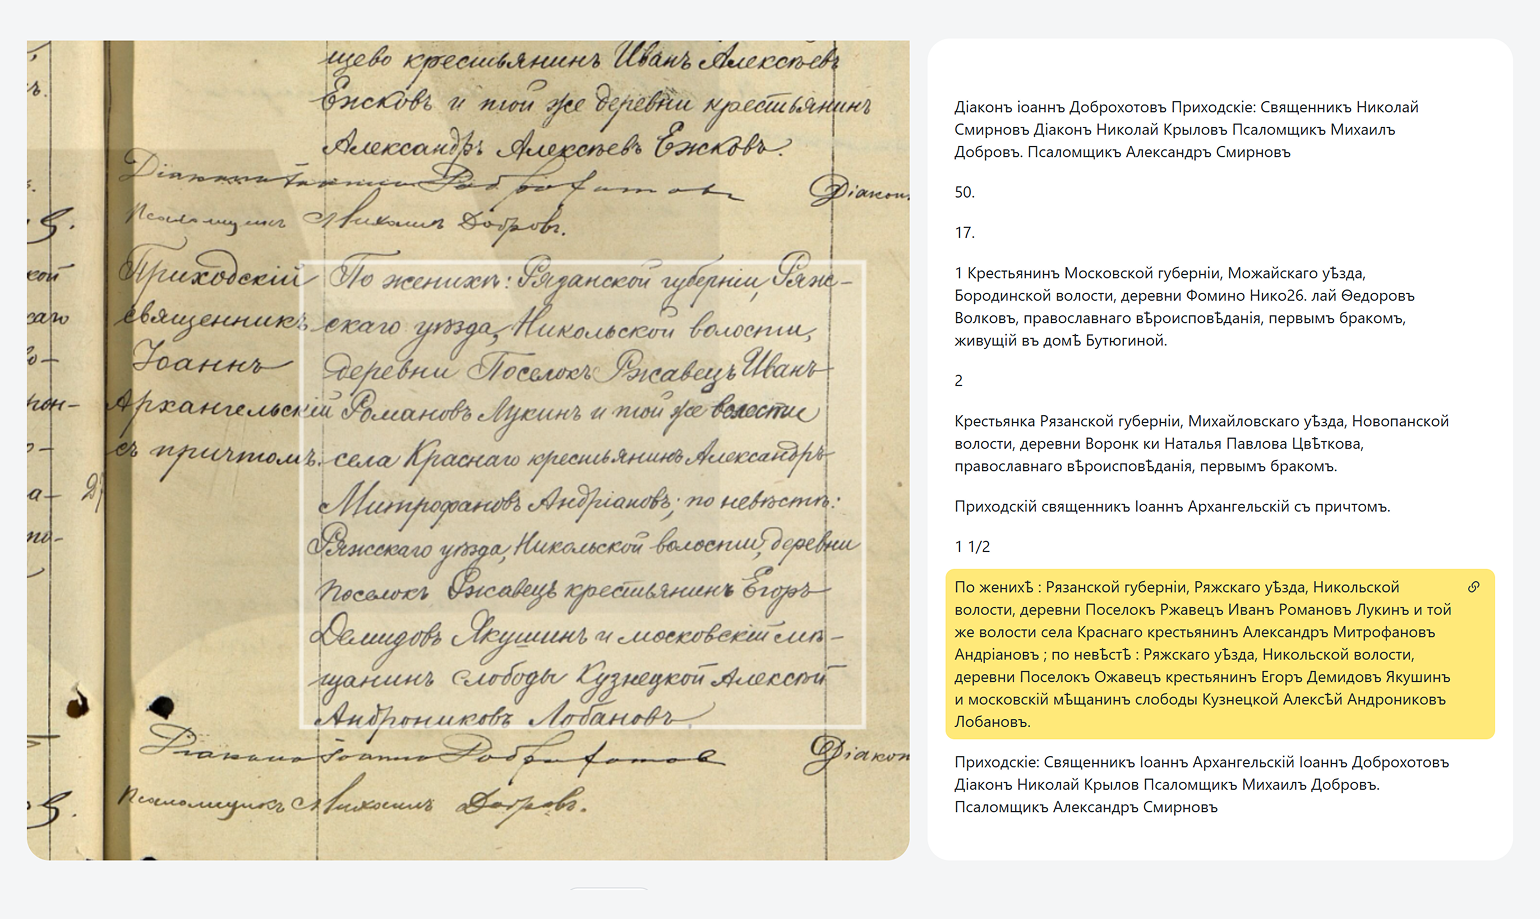 щево крестьянинъ Иванъ Алексѣевъ
Ежсковъ и той же деревни крестьянинъ
Александръ Алексѣевъ Ежковъ.
Діаконъ Іоаннъ Доброхотовъ
Діакон
Псаломщикъ Михаилъ Добровъ.
Приходскій
священникъ
Іоаннъ
Архангельскій
съ причтомъ.
По женихѣ: Рязанской губерніи, Ряж-
скаго уѣзда, Никольской волости,
деревни Поселокъ Ржавецъ Иванъ
Романовъ Лукинъ и той же волости
села Краснаго крестьянинъ Александръ
Митрофановъ Андріановъ; по невѣстѣ:
Ряжскаго уѣзда, Никольской волости, деревни
Поселокъ Ржавецъ крестьянинъ Егоръ
Демидовъ Якушинъ и московскій мѣ-
щанинъ слободы Кузнецкой Алексѣй
Андрониковъ Лобановъ.
Діаконъ Іоаннъ Доброхотовъ
Діакон
Псаломщикъ Михаилъ Добровъ.
Діаконъ іоаннъ Доброхотовъ Приходскіе: Священникъ Николай
Смирновъ Діаконъ Николай Крыловъ Псаломщикъ Михаилъ
Добровъ. Псаломщикъ Александръ Смирновъ
50.
17.
1 Крестьянинъ Московской губерніи, Можайскаго уѣзда,
Бородинской волости, деревни Фомино Нико26. лай Ѳедоровъ
Волковъ, православнаго вѣроисповѣданія, первымъ бракомъ,
живущій въ домѣ Бутюгиной.
2
Крестьянка Рязанской губерніи, Михайловскаго уѣзда, Новопанской
волости, деревни Воронк ки Наталья Павлова Цвѣткова,
православнаго вѣроисповѣданія, первымъ бракомъ.
Приходскій священникъ Іоаннъ Архангельскій съ причтомъ.
1 1/2
По женихѣ : Рязанской губерніи, Ряжскаго уѣзда, Никольской
волости, деревни Поселокъ Ржавецъ Иванъ Романовъ Лукинъ и той
же волости села Краснаго крестьянинъ Александръ Митрофановъ
Андріановъ ; по невѣстѣ : Ряжскаго уѣзда, Никольской волости,
деревни Поселокъ Ожавецъ крестьянинъ Егоръ Демидовъ Якушинъ
и московскій мѣщанинъ слободы Кузнецкой Алексѣй Андрониковъ
Лобановъ.
Приходскіе: Священникъ Іоаннъ Архангельскій Іоаннъ Доброхотовъ
Діаконъ Николай Крылов Псаломщикъ Михаилъ Добровъ.
Псаломщикъ Александръ Смирновъ